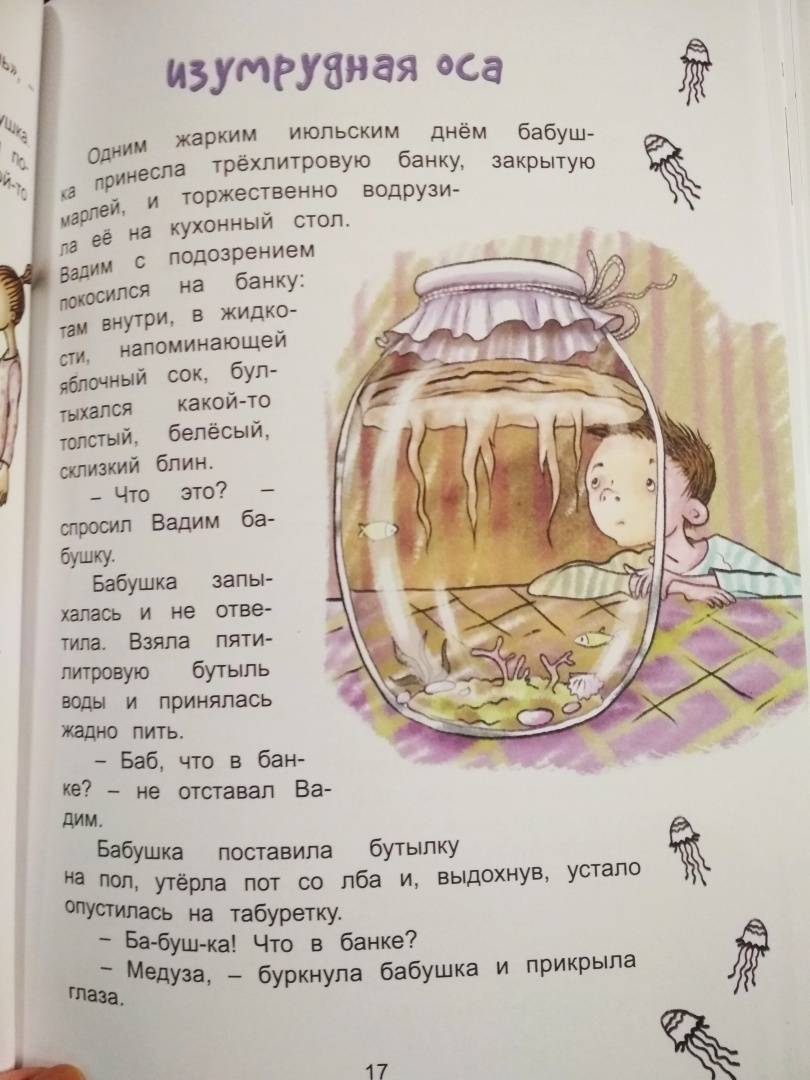 ь», –
ушка.
по-
ой-то
изумрудная оса
Одним жарким июльским днём бабуш-
ка принесла трёхлитровую банку, закрытую
марлей, и торжественно водрузи-
ла её на кухонный стол.
Вадим с подозрением
покосился на банку:
там внутри, в жидко-
сти, напоминающей
яблочный сок, бул-
тыхался какой-то
толстый, белёсый,
склизкий блин.
– Что это? –
спросил Вадим ба-
бушку.
Бабушка запы-
халась и не отве-
тила. Взяла пяти-
литровую бутыль
воды и принялась
жадно пить.
– Баб, что в бан-
ке? – не отставал Ва-
дим.
Бабушка поставила бутылку
на пол, утёрла пот со лба и, выдохнув, устало
опустилась на табуретку.
– Ба-буш-ка! Что в банке?
– Медуза, – буркнула бабушка и прикрыла
глаза.
17